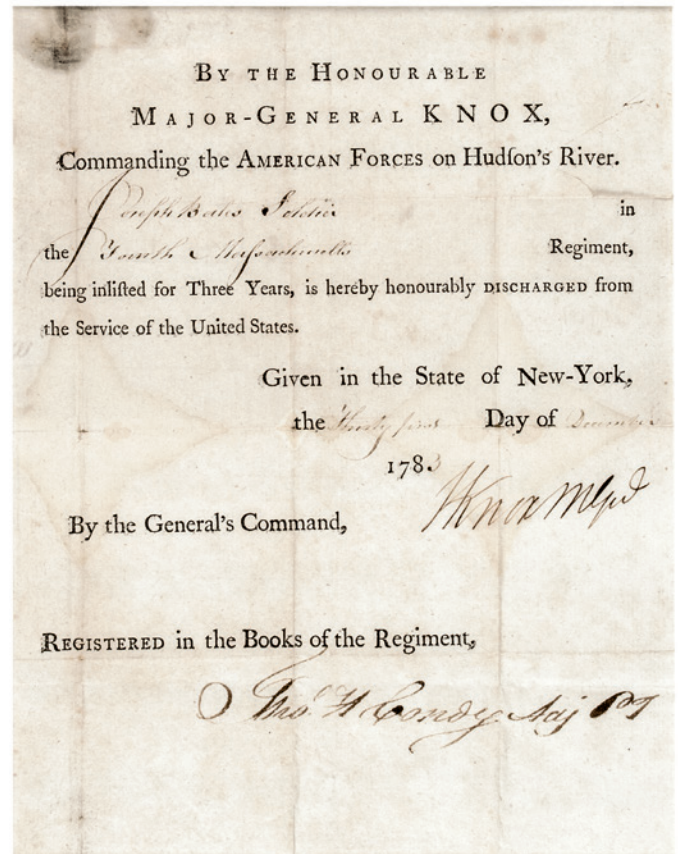 BY THE HONOURABLE
MAJOR-GENERAL KNOX,
Commanding the AMERICAN FORCES on Hudſon's River.
Joseph Bates Soldier in
the Fourth Maſsachusetts Regiment,
being inliſted for Three Years, is hereby honourably DISCHARGED from
the Service of the United States.
Given in the State of New-York,
the Thirty first Day of December
1783
By the General's Command,
HKnox MGen
REGISTERED in the Books of the Regiment,
Tho.s H Condy Adj